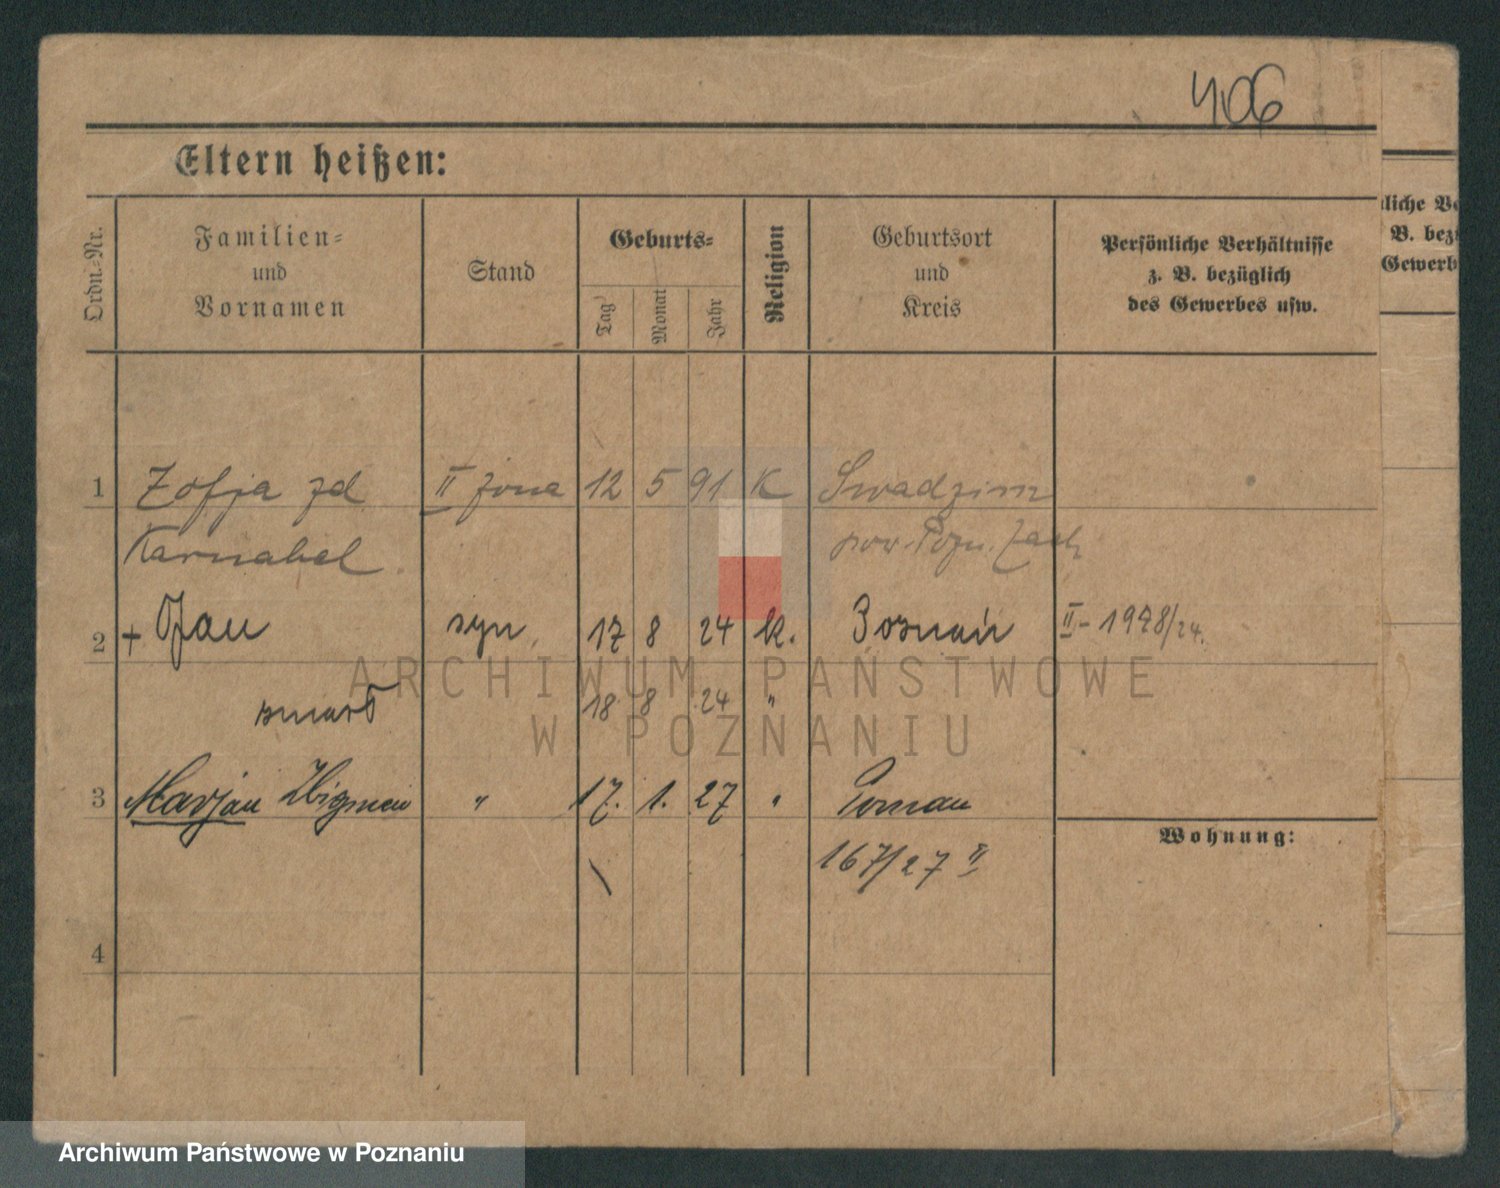 406
Eltern heißen:
Ordn.-Nr.
Familien-
und
Vornamen
Stand
Geburts-
Tag
Monat
Jahr
Religion
Geburtsort
und
Kreis
Persönliche Verhältnisse
z. B. bezüglich
des Gewerbes usw.
liche Ve
B. bezü
Gewerb
1 Zofja zd II żona 12 5 91 K Swadzim
Karnabel pow. Pozn. Zach
2 + Jan syn 17 8 24 k. Poznań II - 1978/24.
zmarł 18 8 24 "
3 Marjan Zbigniew " 17. 1. 27 " Poznań
167/27 II
Wohnung:
4
ARCHIWUM PAŃSTWOWE
W POZNANIU
Archiwum Państwowe w Poznaniu